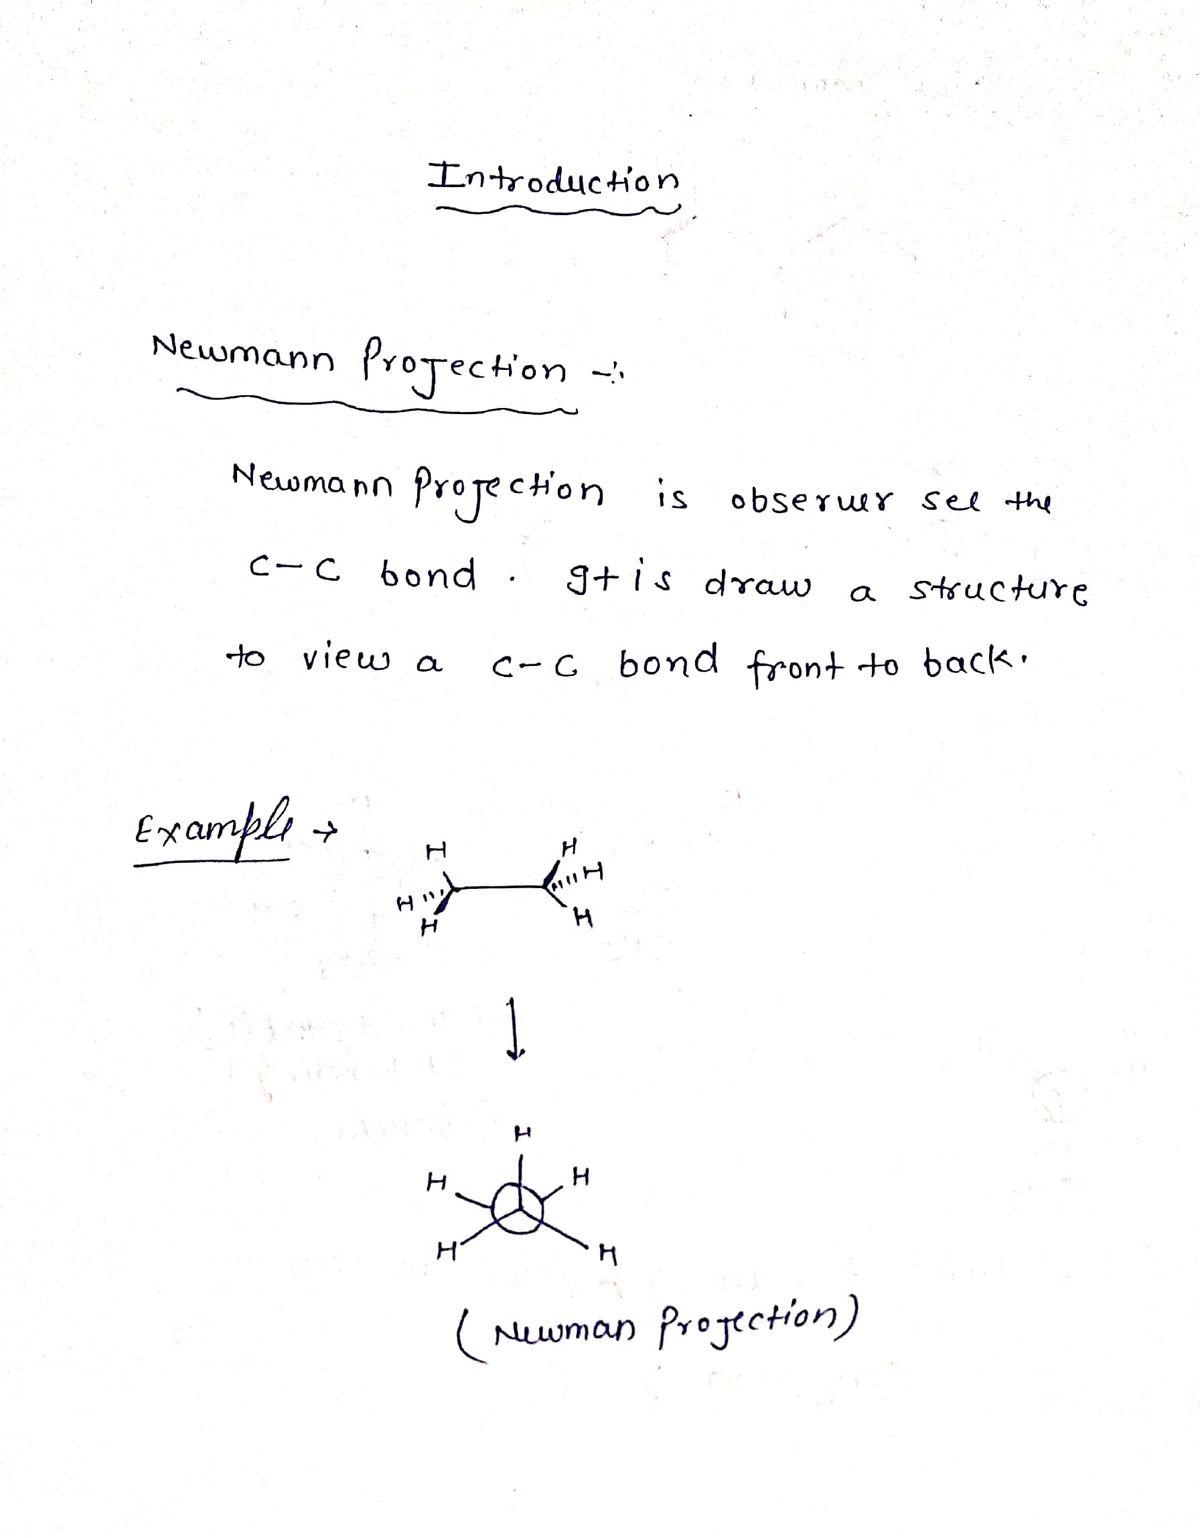 Introduction
Newmann Projection -:
Newmann Projection is observer see the
C-C bond. It is draw a structure
to view a C-C bond front to back.
Example →
H H
H H
H H
H
H H
H H
(Newman Projection)